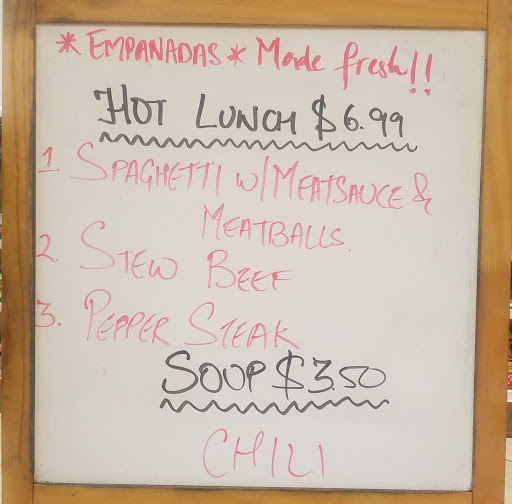 * EMPANADAS * Made fresh!!
HOT LUNCH $6.99
1. SPAGHETTI W/MEATSAUCE &
MEATBALLS.
2. STEW BEEF
3. PEPPER STEAK
SOUP $3.50
CHILI